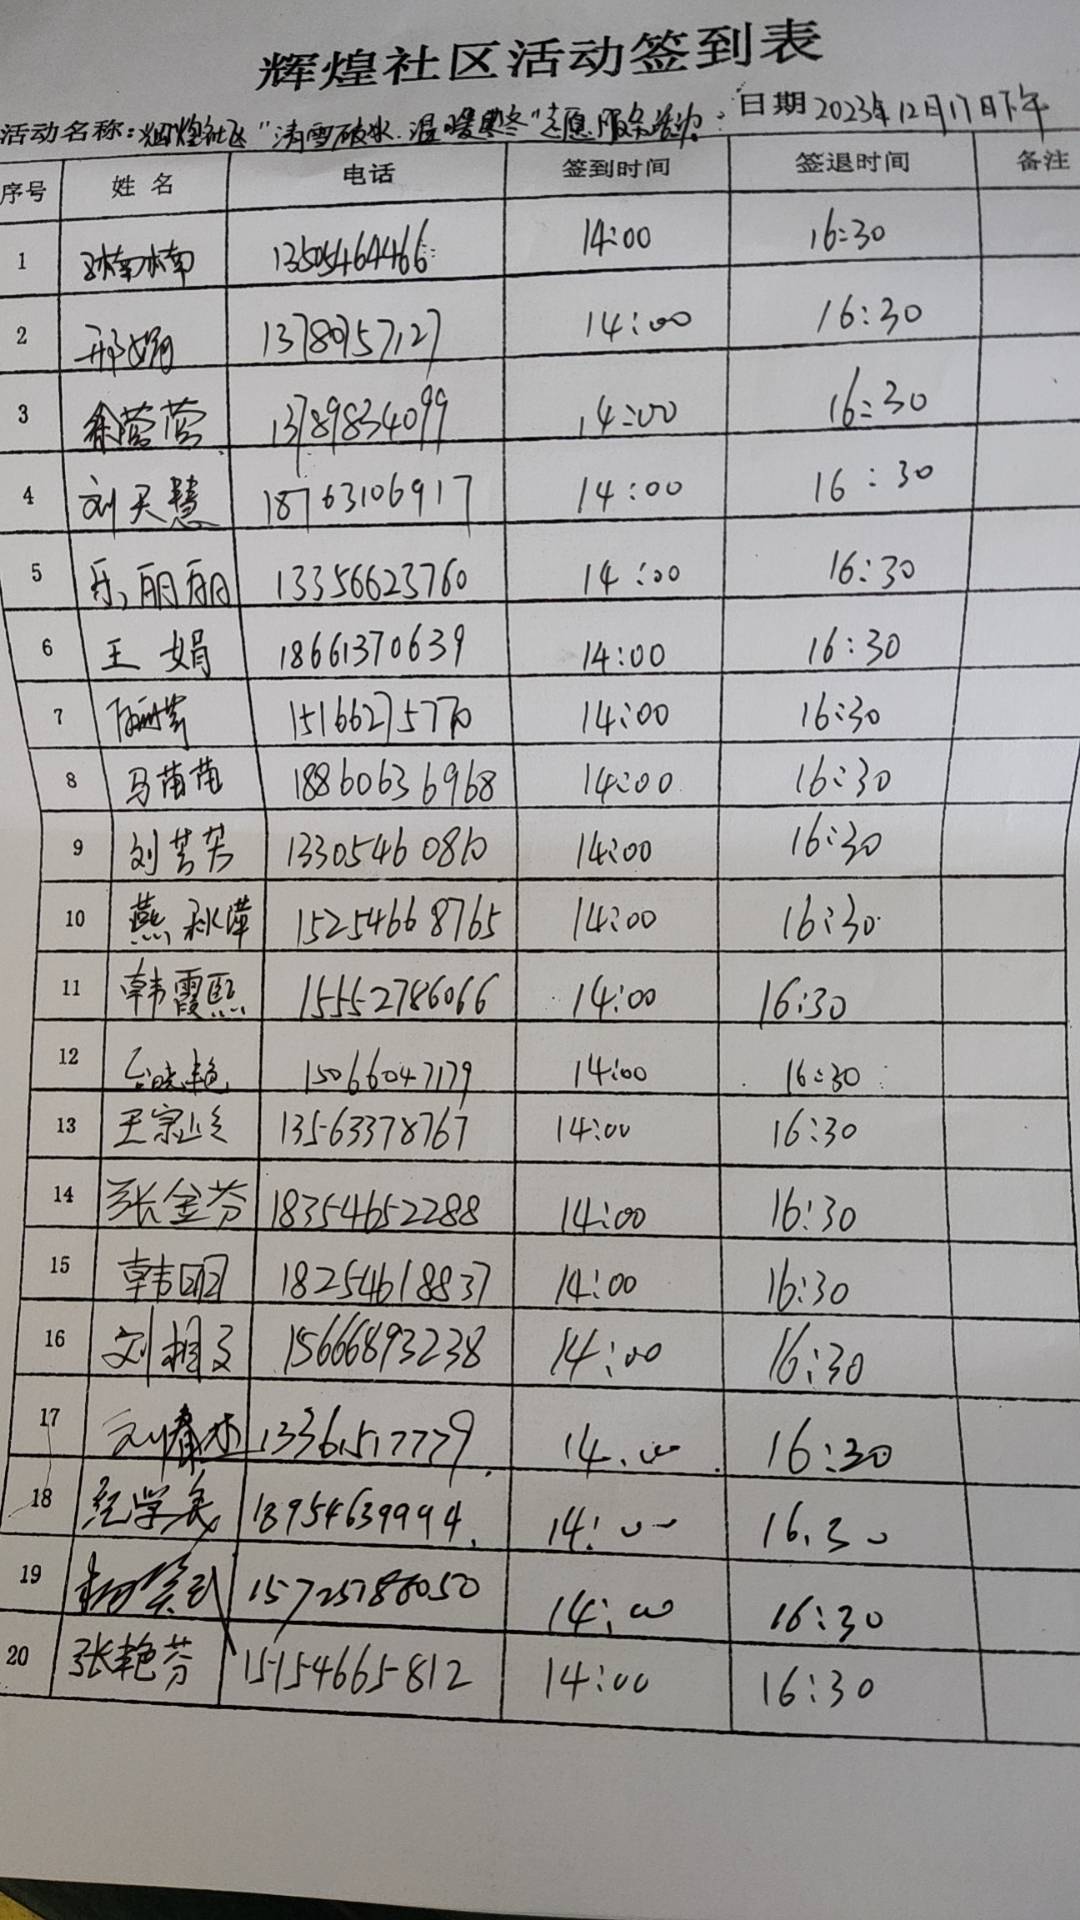 辉煌社区活动签到表
活动名称：辉煌社区"清雪破冰.温暖寒冬"志愿服务活动 日期 2023年12月17日下午
序号 姓名 电话 签到时间 签退时间 备注
1 孙楠楠 13505464466 14:00 16:30
2 邢娟 13780757127 14:00 16:30
3 徐莹莹 13789834099 14:00 16:30
4 刘天慧 18763106917 14:00 16:30
5 乐丽丽 13356623760 14:00 16:30
6 王娟 18661370639 14:00 16:30
7 15166275770 14:00 16:30
8 马苗苗 18860636968 14:00 16:30
9 刘芳芳 13305460810 14:00 16:30
10 燕秋萍 15254668765 14:00 16:30
11 韩霞熙 15552786066 14:00 16:30
12 15066047179 14:00 16:30
13 王宗 13563378767 14:00 16:30
14 张金芬 18354652288 14:00 16:30
15 韩明 18254618837 14:00 16:30
16 刘相文 15666893238 14:00 16:30
17 刘春杰 13361517779 14:00 16:30
18 纪学美 18954639994 14:00 16:30
19 15725788050 14:00 16:30
20 张艳芬 15154665812 14:00 16:30